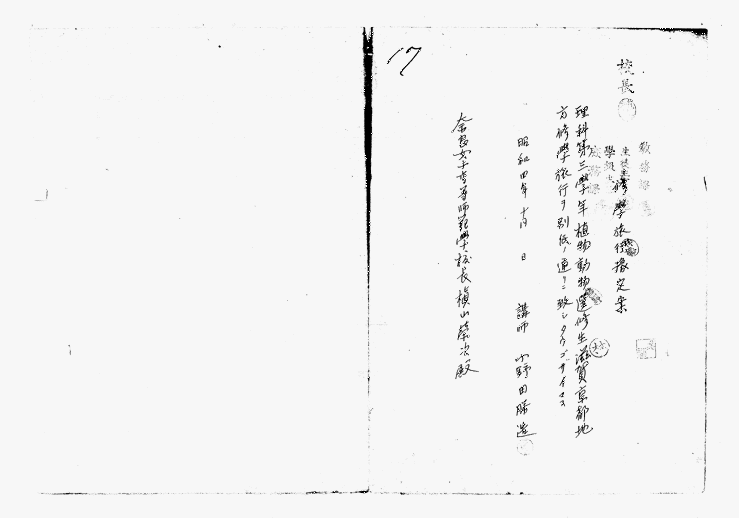 17
校長
教務課
學級主
庶務課
修學旅行豫定案
理科第三學年植物動物選修生滋賀京都地
方修學旅行ヲ別低ノ通リニ致シタウゴザイマス
昭和四年十月 日
講師 小野田勝造
奈良女子高等師範學校長槇山榮次殿